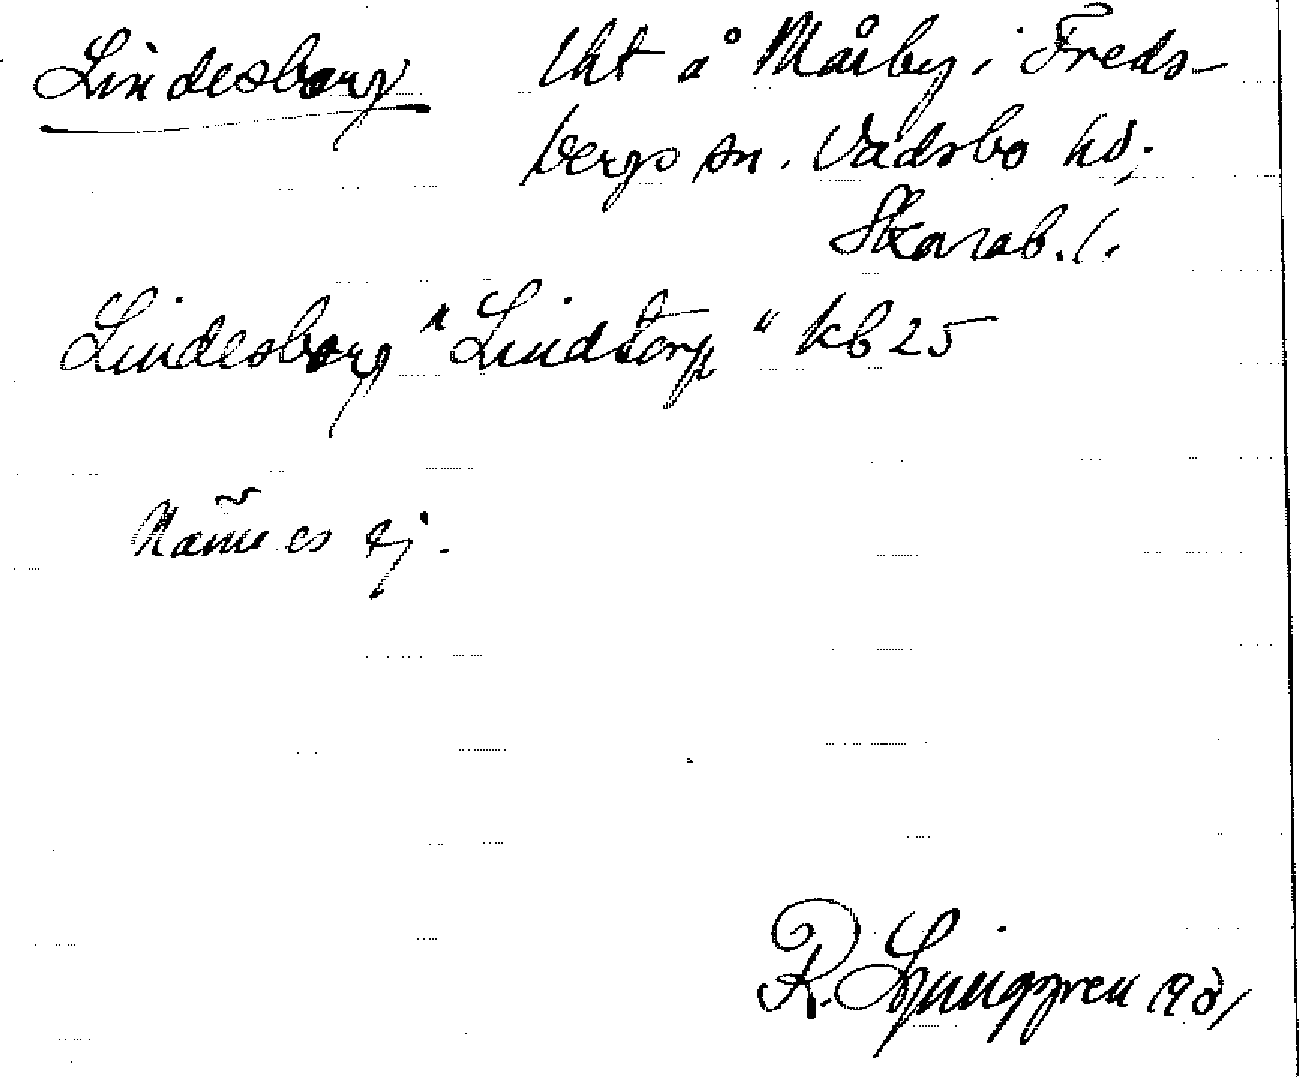 Lindesborg lht å Måiby i Freds-
bergs sn. Vadsbo hd;
Skarab. l.
Lindesborg "Lindstorp" kb 25
Nämnes ej.
R. Ljunggren 1931